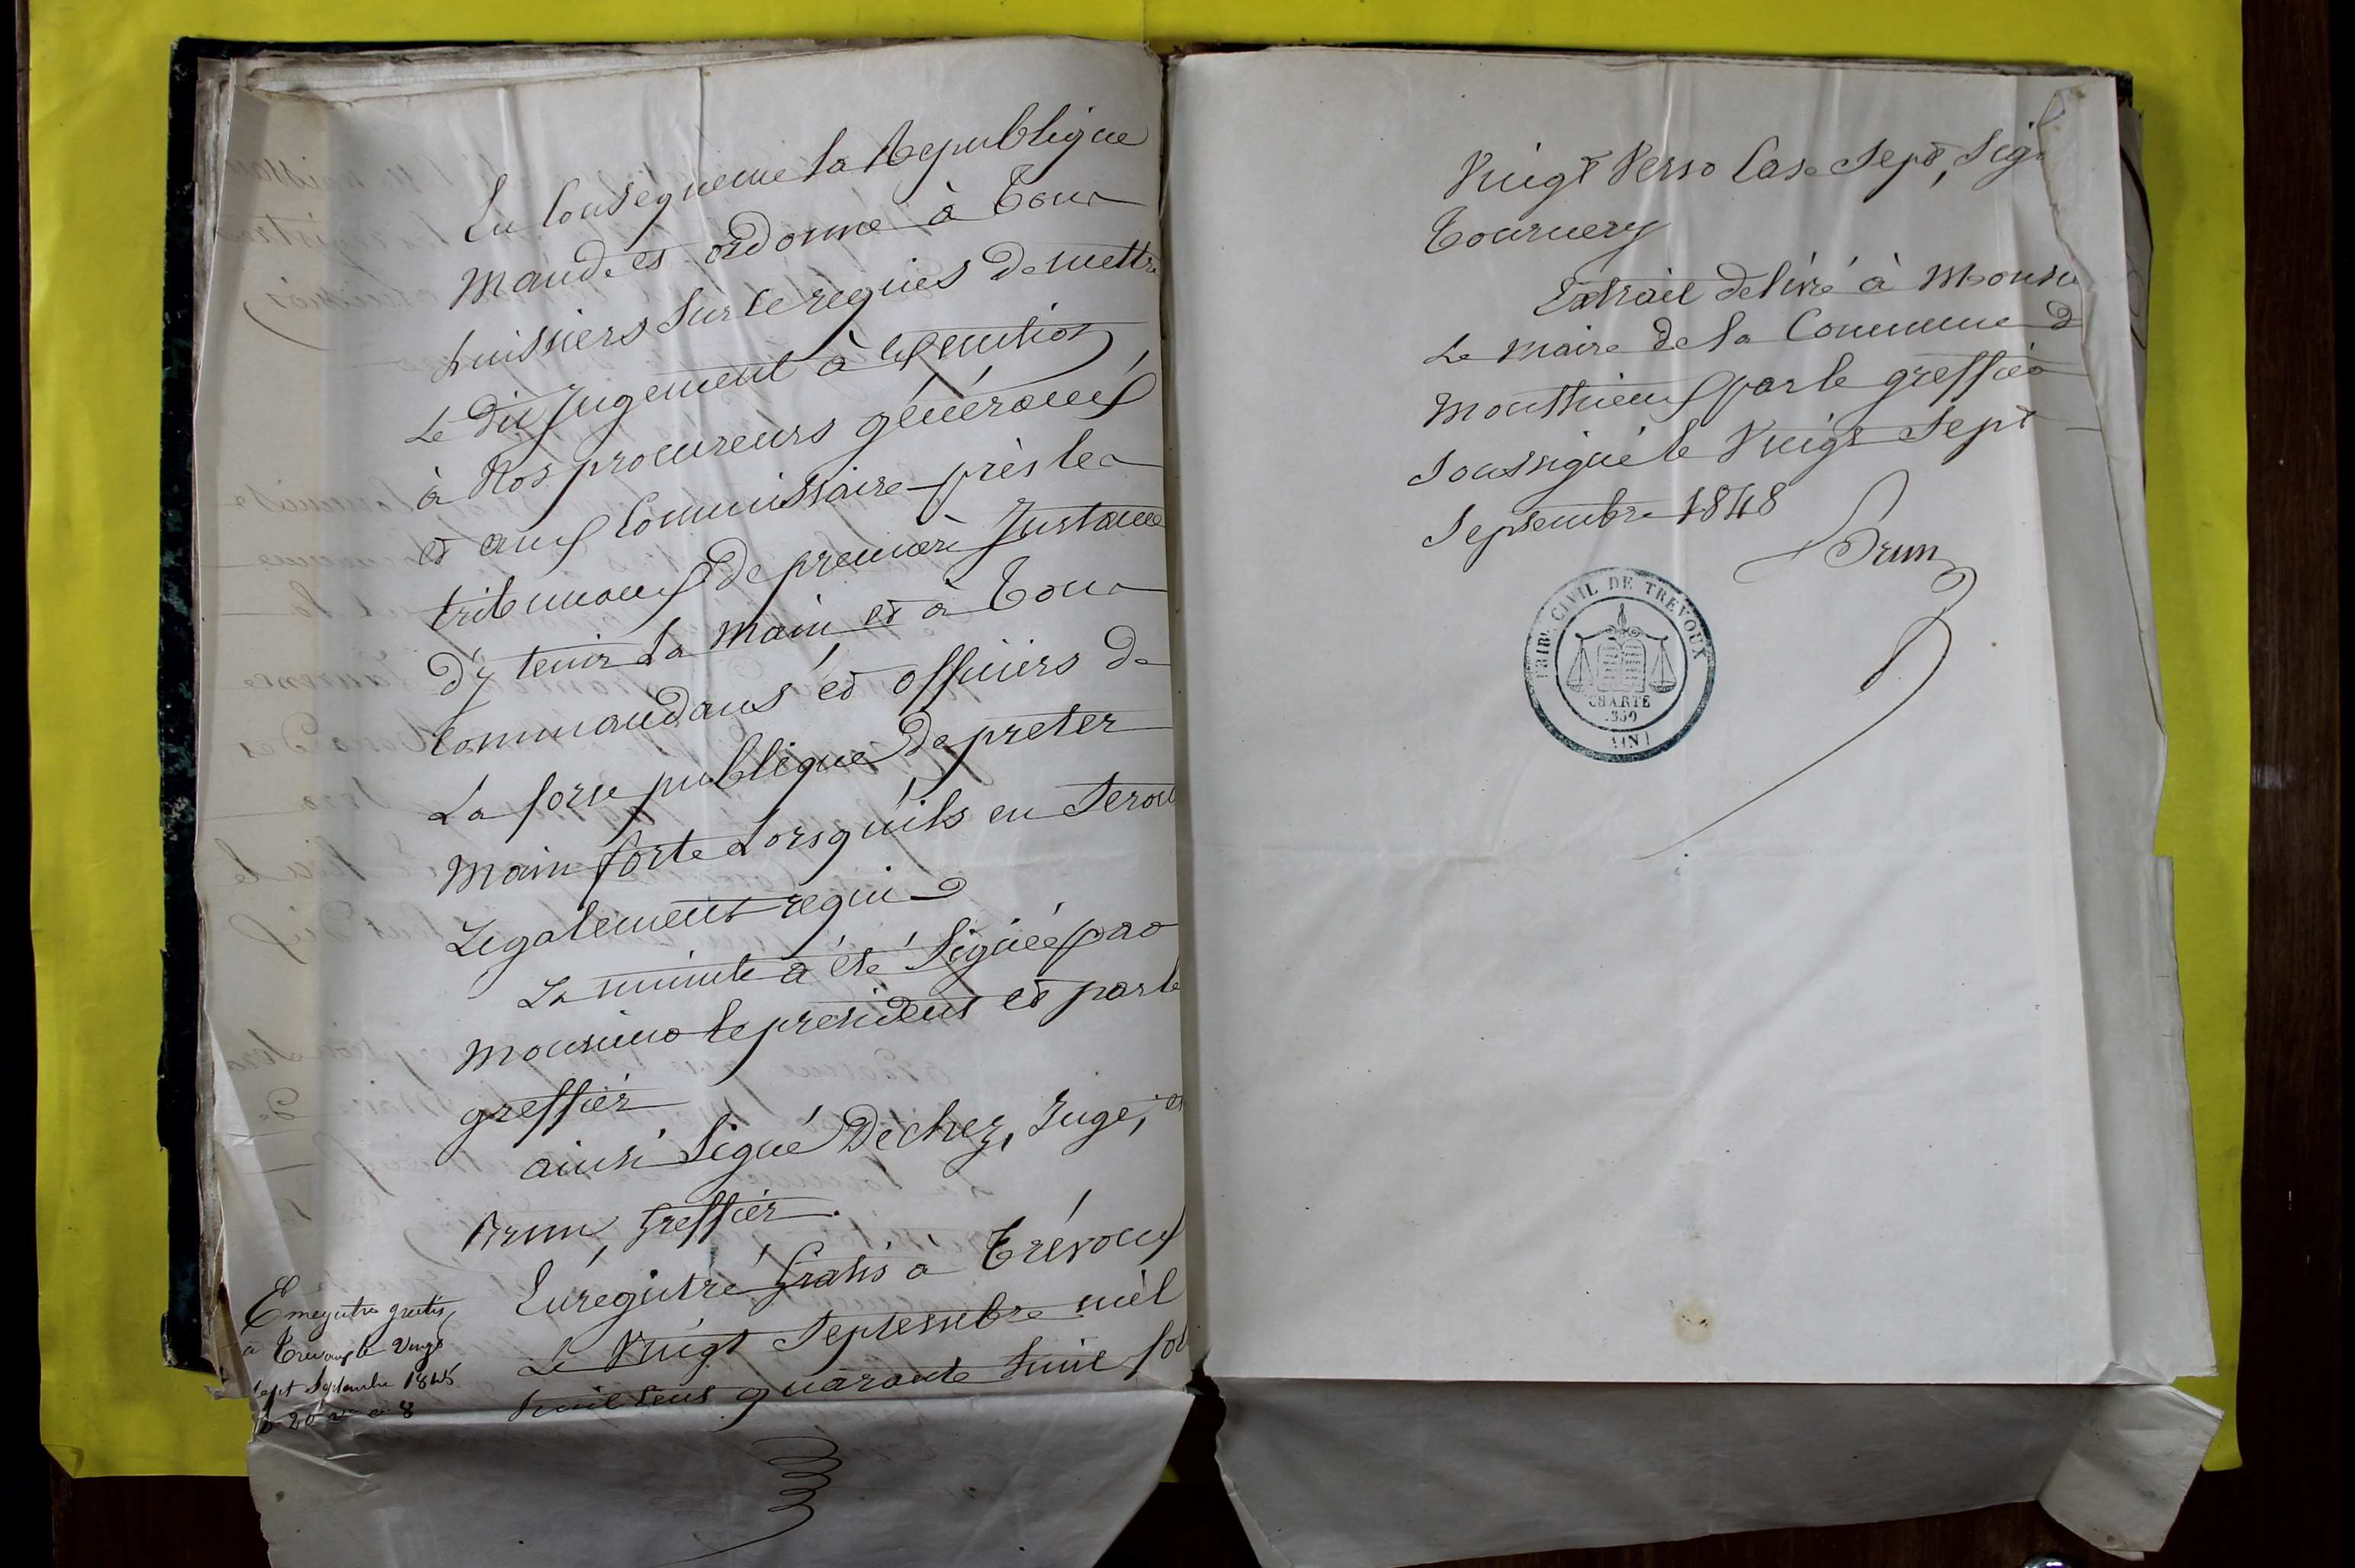 En Consequence la Republique
Mande et ordonne à tous
huissiers sur ce requis de mettre
Le dit Jugement à execution
à Nos procureurs généraux
et aux Commissaire près les
tribunaux de première Instance
d'y tenir La Main, et à tous
Commandans et officiers de
La force publique de preter
Main forte Lorsqu'ils en seront
Legalement requis
La minute a été Signée par
Monsieur le president et par le
greffier
ainsi Signé Dechez, Juge, et
Brun, Greffier.
Enregistré Gratis à Trévoux
Le Vingt Septembre mil
huit cent quarante huit fol
Enregistré gratis
a Trevoux le Vingt
sept Septembre 1848
f° 20 v° c 8
Vingt Verso Case Sept, Sig
Tournery
Extrait delivré à Monsi
Le Maire de la Commune d
Monthieux par le greffier
Soussigné le Vingt Sept
Septembre 1848
Brun
TRIB. CIVIL DE TRÉVOUX
CHARTE
1830
(AIN)